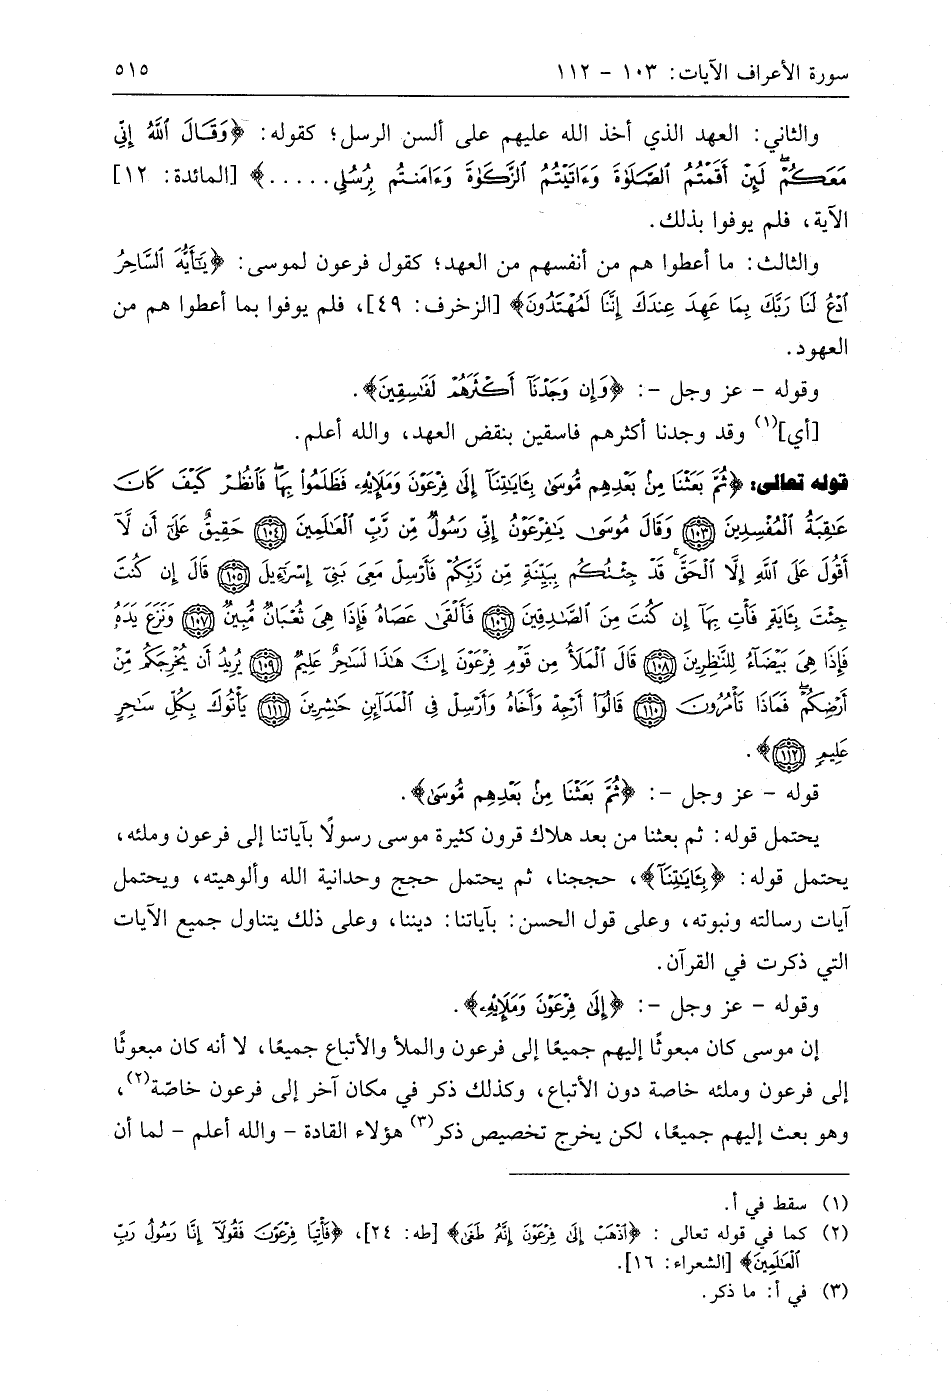 سورة الأعراف الآيات: ١٠٣ - ١١٢ ٥١٥
والثاني: العهد الذي أخذ الله عليهم على ألسن الرسل؛ كقوله: ﴿وَقَالَ ٱللَّهُ إِنِّي
مَعَكُمۡۖ لَئِنۡ أَقَمۡتُمُ ٱلصَّلَوٰةَ وَءَاتَيۡتُمُ ٱلزَّكَوٰةَ وَءَامَنتُم بِرُسُلِي.....﴾ [المائدة: ١٢]
الآية، فلم يوفوا بذلك.
والثالث: ما أعطوا هم من أنفسهم من العهد؛ كقول فرعون لموسى: ﴿يَٰٓأَيُّهَ ٱلسَّاحِرُ
ٱدۡعُ لَنَا رَبَّكَ بِمَا عَهِدَ عِندَكَ إِنَّنَا لَمُهۡتَدُونَ﴾ [الزخرف: ٤٩]، فلم يوفوا بما أعطوا هم من
العهود.
وقوله - عز وجل -: ﴿وَإِن وَجَدۡنَآ أَكۡثَرَهُمۡ لَفَٰسِقِينَ﴾.
[أي](١) وقد وجدنا أكثرهم فاسقين بنقض العهد، والله أعلم.
قوله تعالى: ﴿ثُمَّ بَعَثۡنَا مِنۢ بَعۡدِهِم مُّوسَىٰ بِـَٔايَٰتِنَآ إِلَىٰ فِرۡعَوۡنَ وَمَلَإِيْهِۦ فَظَلَمُواْ بِهَاۖ فَٱنظُرۡ كَيۡفَ كَانَ
عَٰقِبَةُ ٱلۡمُفۡسِدِينَ ١٠٣ وَقَالَ مُوسَىٰ يَٰفِرۡعَوۡنُ إِنِّي رَسُولٞ مِّن رَّبِّ ٱلۡعَٰلَمِينَ ١٠٤ حَقِيقٌ عَلَىٰٓ أَن لَّآ
أَقُولَ عَلَى ٱللَّهِ إِلَّا ٱلۡحَقَّۚ قَدۡ جِئۡتُكُم بِبَيِّنَةٖ مِّن رَّبِّكُمۡ فَأَرۡسِلۡ مَعِيَ بَنِيٓ إِسۡرَٰٓءِيلَ ١٠٥ قَالَ إِن كُنتَ
جِئۡتَ بِـَٔايَةٖ فَأۡتِ بِهَآ إِن كُنتَ مِنَ ٱلصَّٰدِقِينَ ١٠٦ فَأَلۡقَىٰ عَصَاهُ فَإِذَا هِيَ ثُعۡبَانٞ مُّبِينٞ ١٠٧ وَنَزَعَ يَدَهُۥ
فَإِذَا هِيَ بَيۡضَآءُ لِلنَّٰظِرِينَ ١٠٨ قَالَ ٱلۡمَلَأُ مِن قَوۡمِ فِرۡعَوۡنَ إِنَّ هَٰذَا لَسَٰحِرٌ عَلِيمٞ ١٠٩ يُرِيدُ أَن يُخۡرِجَكُم مِّنۡ
أَرۡضِكُمۡۖ فَمَاذَا تَأۡمُرُونَ ١١٠ قَالُوٓاْ أَرۡجِهۡ وَأَخَاهُ وَأَرۡسِلۡ فِي ٱلۡمَدَآئِنِ حَٰشِرِينَ ١١١ يَأۡتُوكَ بِكُلِّ سَٰحِرٍ
عَلِيمٖ ١١٢﴾.
قوله - عز وجل -: ﴿ثُمَّ بَعَثۡنَا مِنۢ بَعۡدِهِم مُّوسَىٰ﴾.
يحتمل قوله: ثم بعثنا من بعد هلاك قرون كثيرة موسى رسولًا بآياتنا إلى فرعون وملئه،
يحتمل قوله: ﴿بِـَٔايَٰتِنَآ﴾، حججنا، ثم يحتمل حجج وحدانية الله وألوهيته، ويحتمل
آيات رسالته ونبوته، وعلى قول الحسن: بآياتنا: ديننا، وعلى ذلك يتناول جميع الآيات
التي ذكرت في القرآن.
وقوله - عز وجل -: ﴿إِلَىٰ فِرۡعَوۡنَ وَمَلَإِيْهِۦ﴾.
إن موسى كان مبعوثًا إليهم جميعًا إلى فرعون والملأ والأتباع جميعًا، لا أنه كان مبعوثًا
إلى فرعون وملئه خاصة دون الأتباع، وكذلك ذكر في مكان آخر إلى فرعون خاصّة(٢)،
وهو بعث إليهم جميعًا، لكن يخرج تخصيص ذكر(٣) هؤلاء القادة - والله أعلم - لما أن
(١) سقط في أ.
(٢) كما في قوله تعالى : ﴿ٱذۡهَبۡ إِلَىٰ فِرۡعَوۡنَ إِنَّهُۥ طَغَىٰ﴾ [طه: ٢٤]، ﴿فَأۡتِيَا فِرۡعَوۡنَ فَقُولَآ إِنَّا رَسُولُ رَبِّ
ٱلۡعَٰلَمِينَ﴾ [الشعراء: ١٦].
(٣) في أ: ما ذكر.